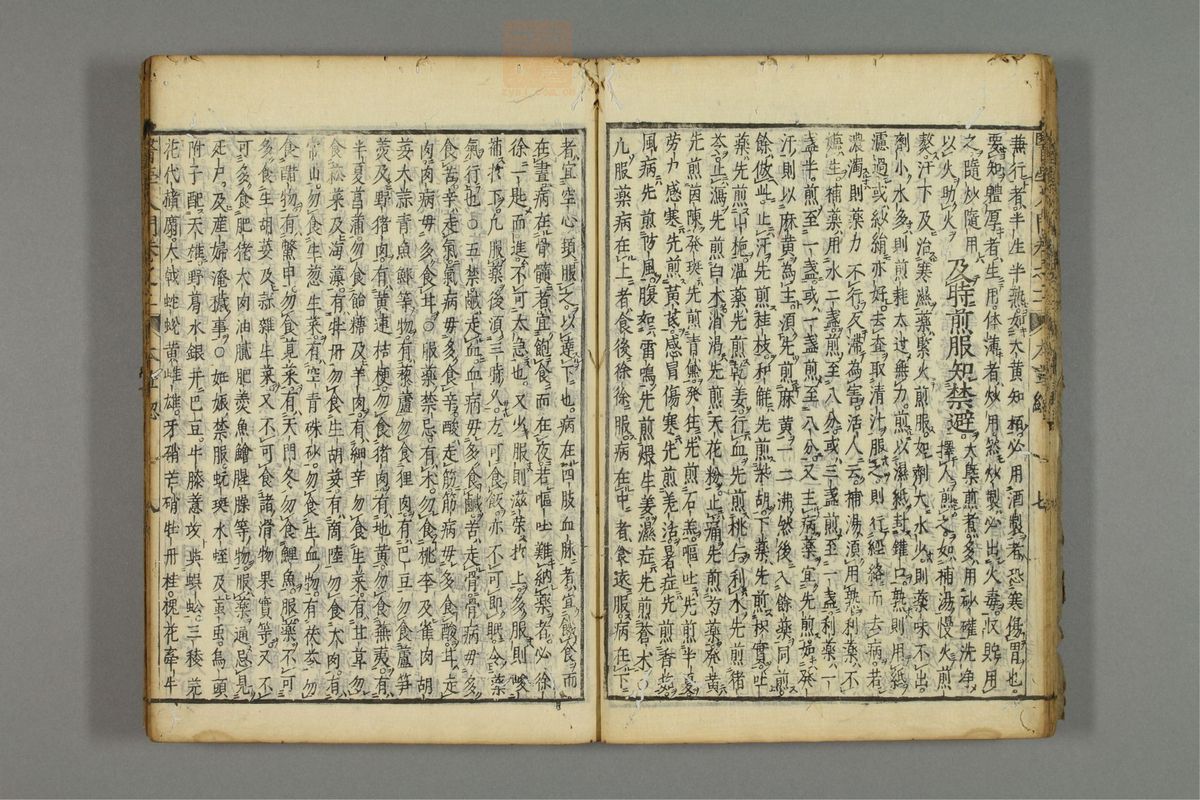 兼行者半生半熟如大黃知栢必用酒製者恐寒傷胃也
要知體厚者生用体薄者炒用煞炒製必出火毒収貯用
之隨炒隨用
以火助火
及時煎服知禁避
大槩煎者多用砂確洗净
擇人煎之如補湯慢火煎
熬汗下及治寒熱藥緊火煎服如劑大水少則藥味不出
劑小水多則煎耗太过無力煎以濕紙封鑵口熟則用紙
濾過或紗絹亦好去査取清汁服之則行經絡而去病若
濃濁則藥力不行反滯為害活人云補湯須用熟利藥不
嫌生補藥用水二盞煎至八分或三盞煎至一盞利藥一
盞半煎至一盞或一盞煎至八分又主病藥宜先煎如發
汗則以麻黃為主須先煎麻黄一二沸然後入餘藥同煎
餘倣此止汗先煎桂枝和解先煎柴胡下藥先煎枳實吐
藥先煎山梔温藥先煎乾姜行血先煎桃仁利水先煎猪
苓止瀉先煎白木消渴先煎天花粉止痛先煎芍藥發黃
先煎茵陳發斑先煎青黛發狂先煎石羔嘔吐先煎半夏
劳力感寒先煎黃芪感冒傷寒先煎羌活暑症先煎香薷
風病先煎防風腹如雷鳴先煎煨生姜濕症先煎蒼木〇
凡服藥病在上者食後徐徐服病在中者食遠服病在下
者宜空心頻服之以達下也病在四肢血脉者宜飢食而
在晝病在骨髓者宜飽食而在夜若嘔吐難納藥者必徐
徐一匙而進不可太急也又火服則滋荣於上多服則峻
補於下凢服藥後須三時久方可食飯亦不可即眠令藥
氣行也〇五禁鹹走血血病毋多食鹹苦走骨骨病毋多
食苦辛走氣氣病毋多食辛酸走筋筋病毋多食酸甘走
肉肉病毋多食甘〇服藥禁忌有木勿食桃李及雀肉胡
荽大蒜青魚鮓等物有藜蘆勿食狸肉有巴豆勿食蘆笋
羹及野猪肉有黄連桔梗勿食猪肉有地黃勿食蕪荑有
半夏菖蒲勿食飴糖及羊肉有細辛勿食生菜有甘草勿
食菘菜及海藻有牡丹勿食生胡荽有商陸勿食犬肉有
常山勿食生葱生菜有空青硃砂勿食生血物有茯苓勿
食醋物有鱉甲勿食莧菜有天門冬勿食鯉魚服藥不可
多食生胡荽及蒜雜生菜又不可食諸滑物果實等又不
可多食肥猪犬肉油膩肥羮魚鱠腥臊等物服藥通忌見
死尸及産婦淹穢事〇姙娠禁服蚖斑水蛭及䖟虫烏頭
附子配天雄野葛水銀并巴豆牛膝薏苡與蜈蚣三稜芫
花代赭麝大戟蛇蛻黄雌雄牙硝芒硝牡丹桂槐花牽牛